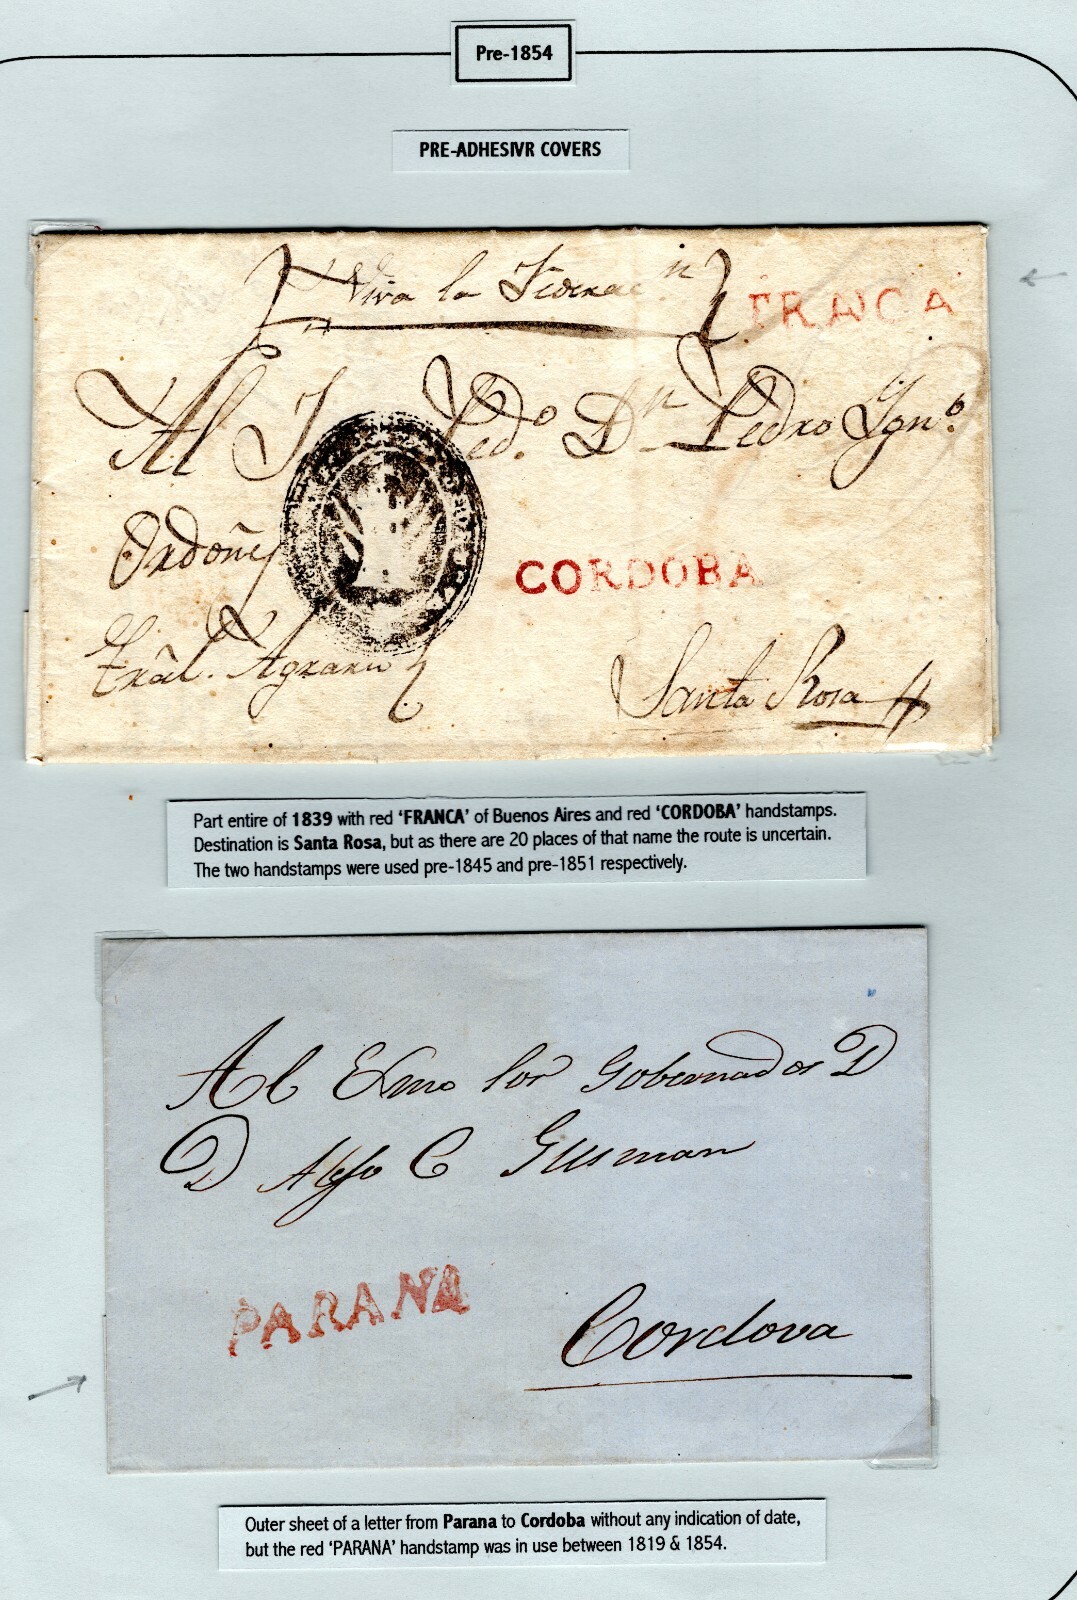 Pre-1854
PRE-ADHESIVR COVERS
Viva la Federac n
FRANCA
Al J Ped.o Dn Pedro Ygn.o
Ordoñez
CORDOBA
Santa Rosa
Part entire of 1839 with red ‘FRANCA’ of Buenos Aires and red ‘CORDOBA’ handstamps.
Destination is Santa Rosa, but as there are 20 places of that name the route is uncertain.
The two handstamps were used pre-1845 and pre-1851 respectively.
Al Exmo Sor Gobernador D
D Alejo C Gusman
PARANA
Cordova
Outer sheet of a letter from Parana to Cordoba without any indication of date,
but the red ‘PARANA’ handstamp was in use between 1819 & 1854.